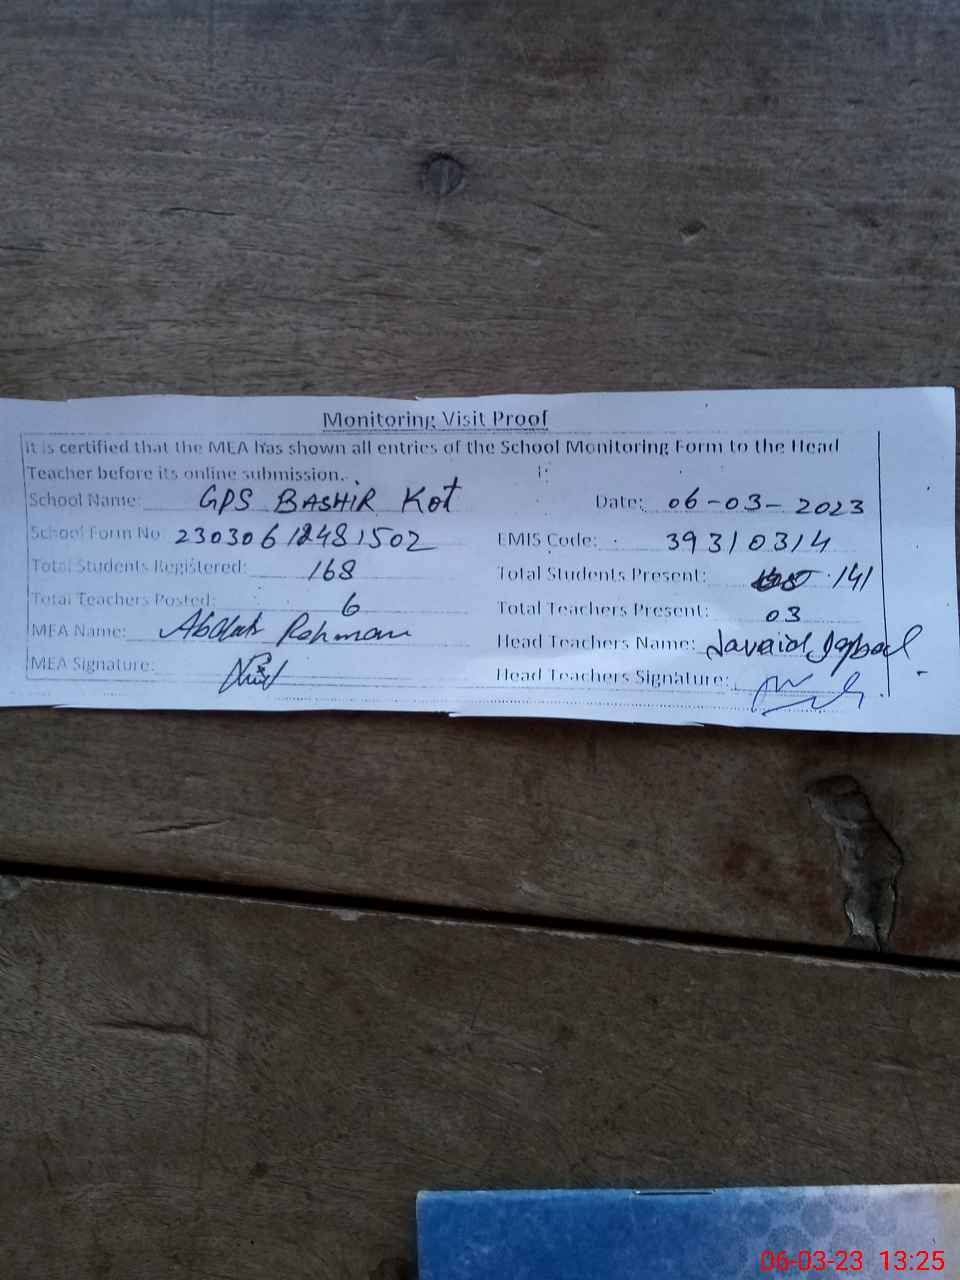 Monitoring Visit Proof
It is certified that the MEA has shown all entries of the School Monitoring Form to the Head
Teacher before its online submission.
School Name: GPS BASHIR Kot Date: 06-03-2023
School Form No 23030612481502 EMIS Code: 39310314
Total Students Registered: 168 Total Students Present: 141
Total Teachers Posted: 6 Total Teachers Present: 03
MEA Name: Rehman Head Teachers Name: Javaid Iqbal
MEA Signature: Head Teachers Signature:
06-03-23 13:25